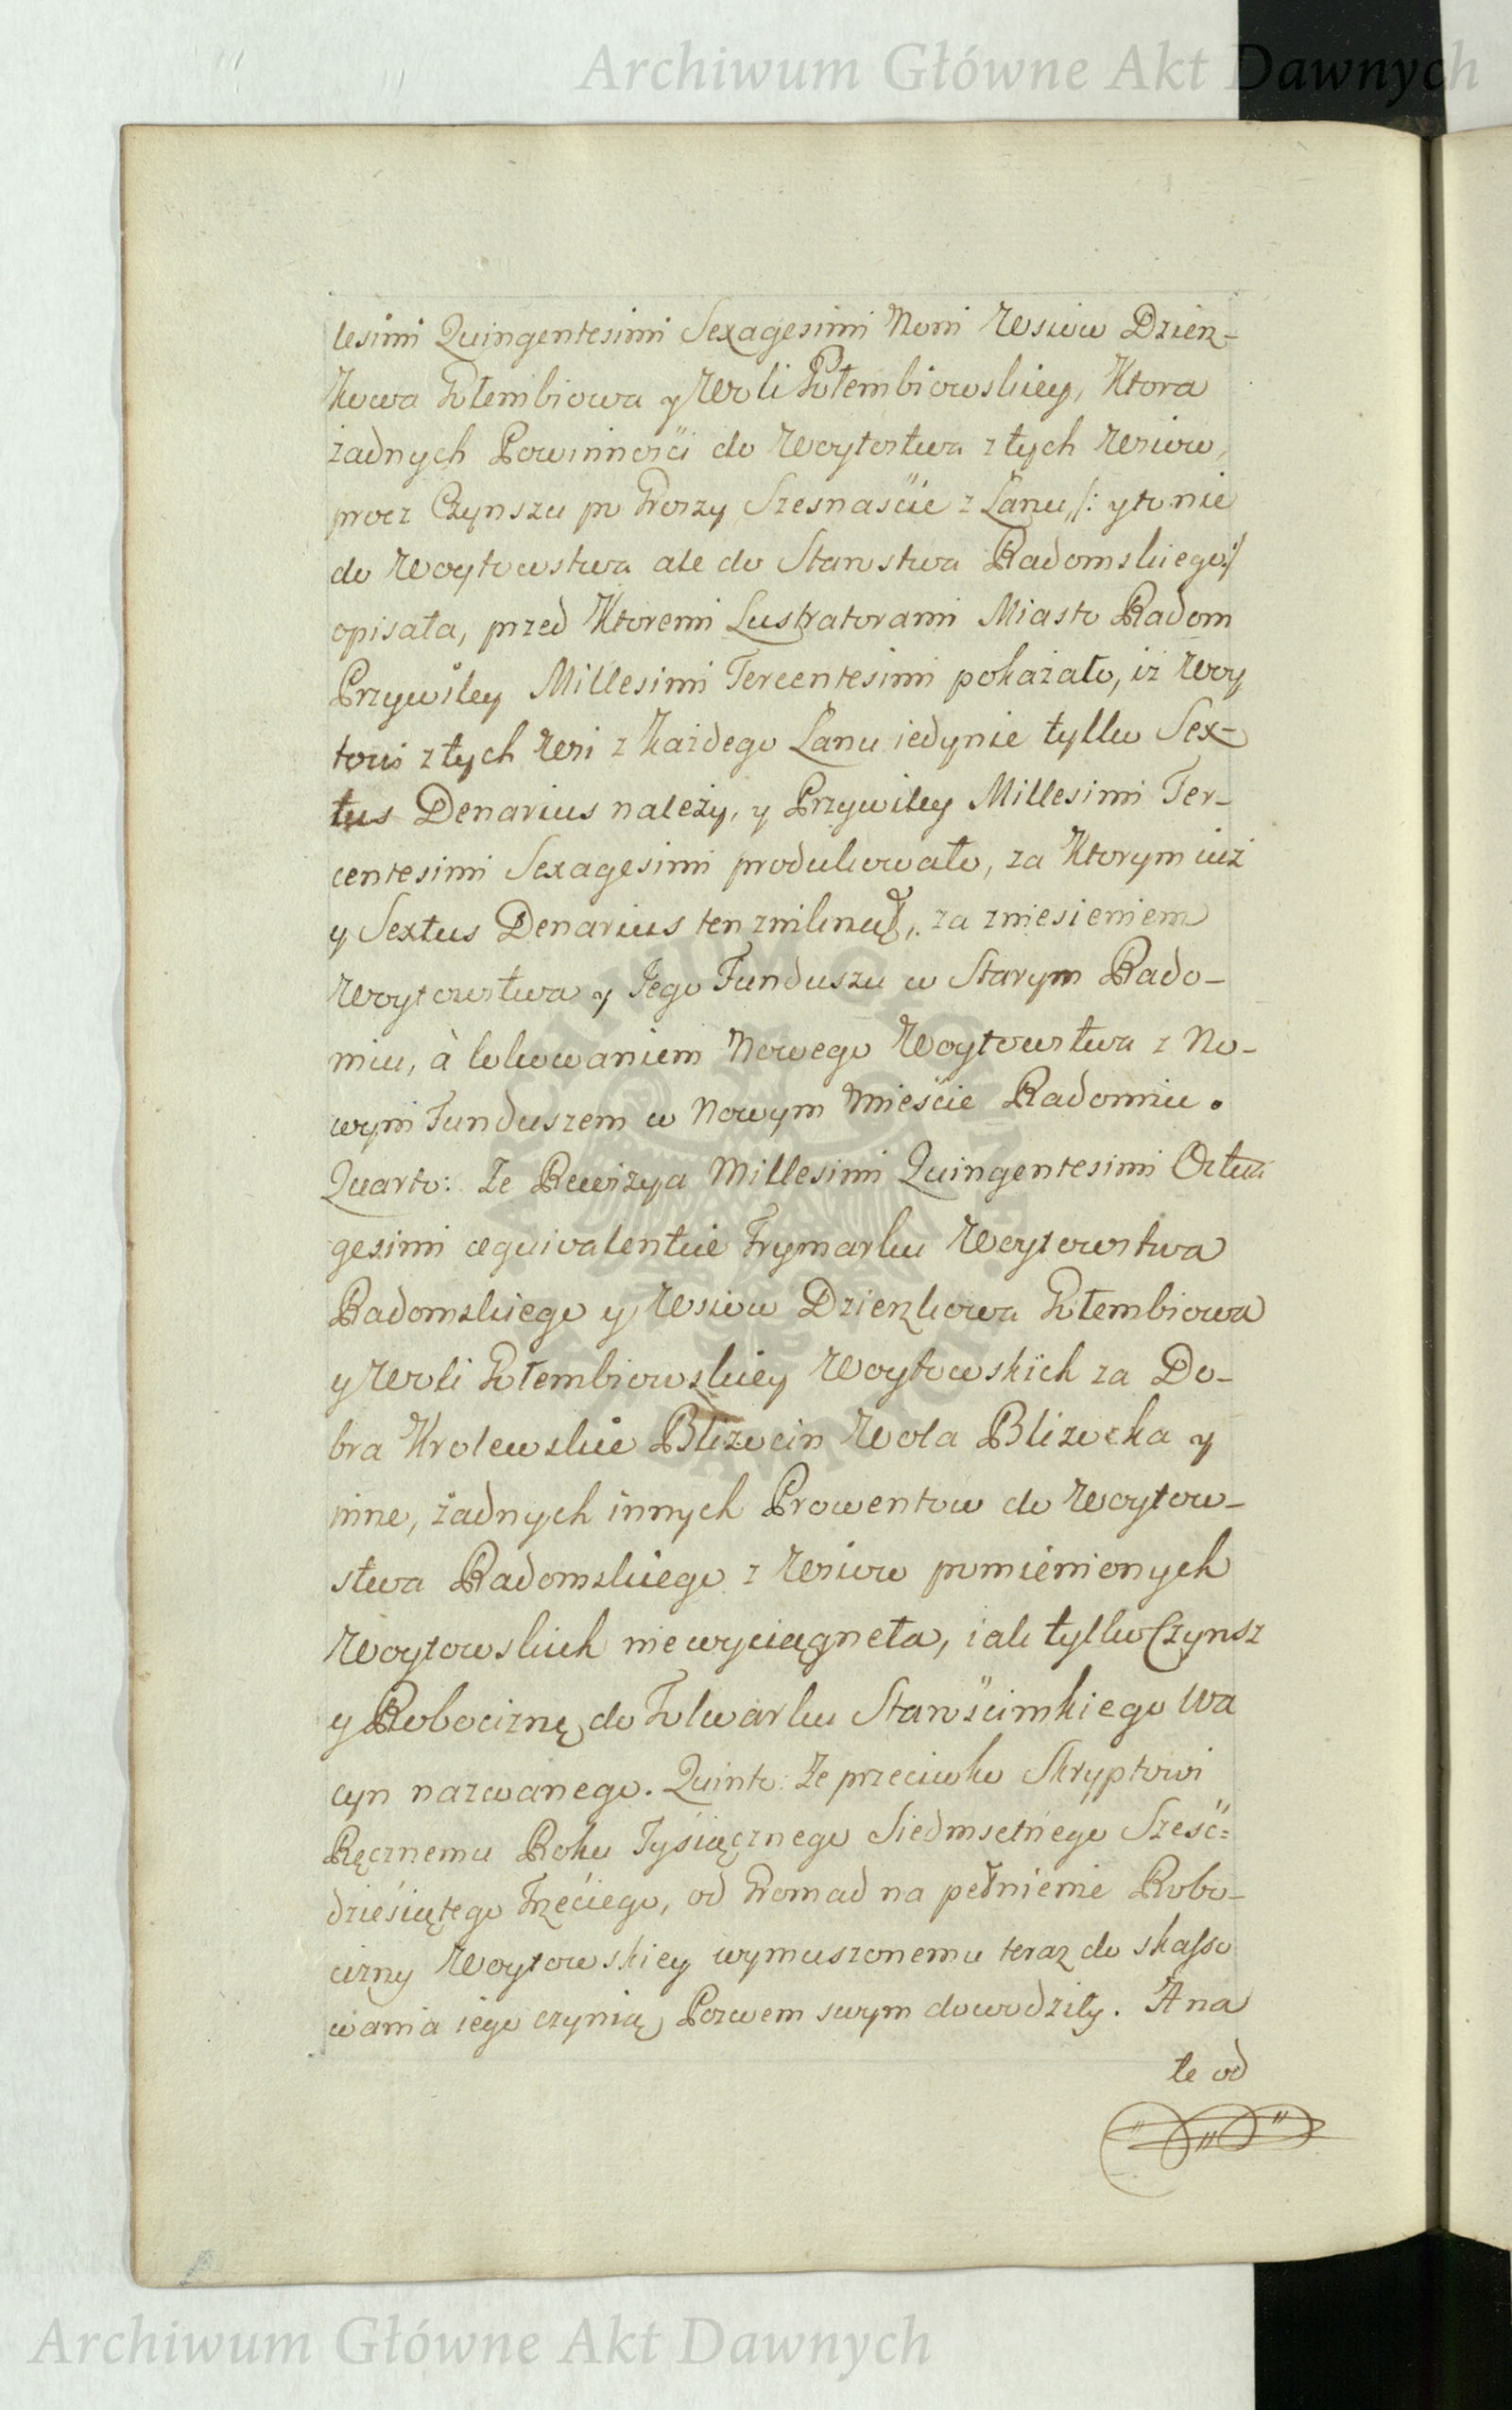 Archiwum Główne Akt Dawnych
lesimi Quingentesimi Sexagesimi Noni Wsiow Dzierz-
kowa Gołembiowa y Woli Gołembiowskiey, Ktora
żadnych Powinności do Woytostwa z tych Wsiow,
procz Czynszu po Groszy Szesnaście z Łanu /: y to nie
do Woytowstwa ale do Starostwa Radomskiego :/
opisała, przed Ktoremi Lustratorami Miasto Radom
Przywiley Millesimi Tercentesimi pokazało, iż Woy
towi z tych Wsi z Każdego Łanu iedynie tylko Sex-
tus Denarius należy, y Przywiley Millesimi Ter-
centesimi Sexagesimi produkowało, za Ktorym iuż
y Sextus Denarius ten zniknął, za zniesieniem
Woytowstwa y Jego Funduszu w Starym Rado-
miu, à lokowaniem Nowego Woytowstwa z No-
wym Funduszem w Nowym Mieście Radomiu.
Quarto: Ze Rewizya Millesimi Quingentesimi Octua
gesimi aequivalentie Frymarku Woytowstwa
Radomskiego y Wsiow Dzierzkowa Gołembiowa
y Woli Gołembiowskiey Woytowskich za Do-
bra Krolewskie Bliżocin Wola Bliżocka y
inne, żadnych innych Prowentow do Woytow-
stwa Radomskiego z Wsiow pomienionych
Woytowskich nie wyciągneła, iak tylko Czynsz
y Robociznę do Folwarku Starościnskiego Wa
cyn nazwanego. Quinto: Ze przeciwko Skryptowi
Ręcznemu Roku Tysiącznego Siedmsetnego Sześć=
dziesiątego Trzeciego, od Gromad na pełnienie Robo-
cizny Woytowskiey wymuszonemu teraz do skasso
wania iego czynią, Pozwem swym dowodziły. A na
te od
Archiwum Główne Akt Dawnych